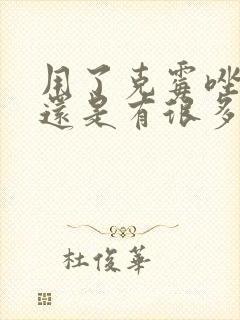 用了克霉唑
還是有很多
杜俊華